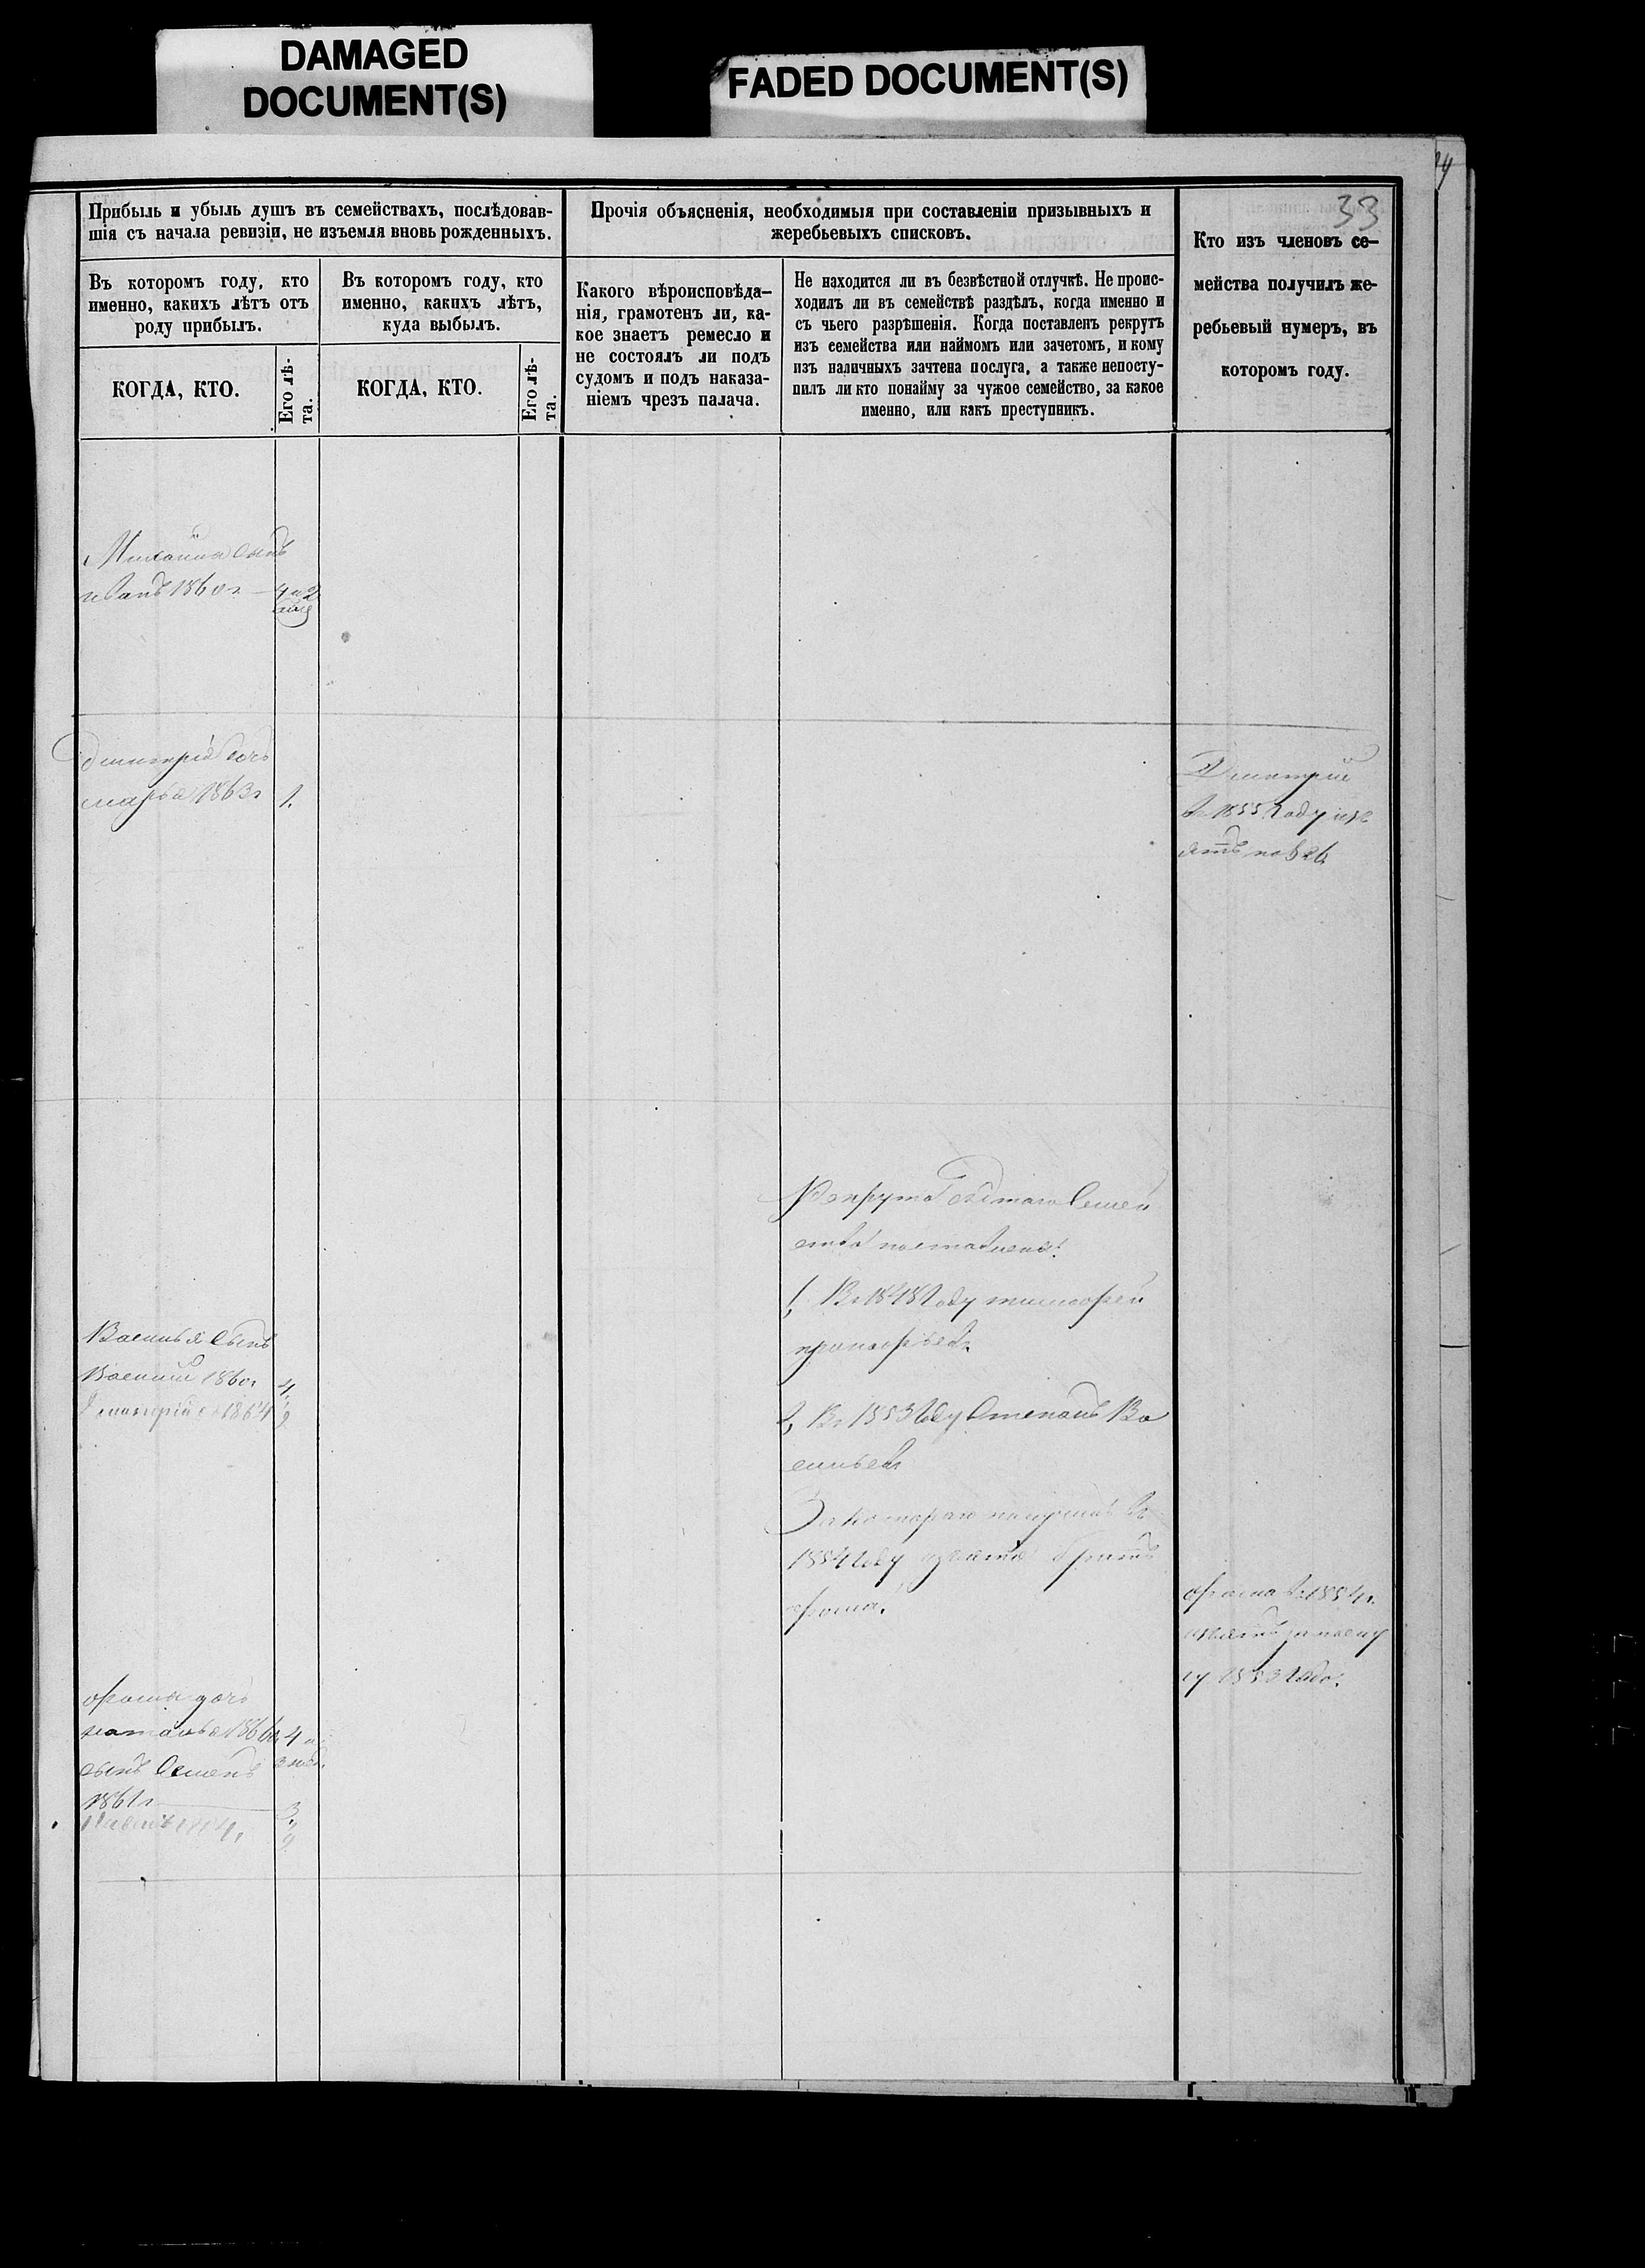 DAMAGED
DOCUMENT(S)
FADED DOCUMENT(S)
33
Прибыль и убыль душъ въ семействахъ, послѣдовав-
шія съ начала ревизіи, не изъемля вновь рожденныхъ.
Въ которомъ году, кто
именно, какихъ лѣтъ отъ
роду прибылъ.
КОГДА, КТО.
Его лѣ-
та.
Въ которомъ году, кто
именно, какихъ лѣтъ,
куда выбылъ.
КОГДА, КТО.
Его лѣ-
та.
Прочія объясненія, необходимыя при составленіи призывныхъ и
жеребьевыхъ списковъ.
Какого вѣроисповѣда-
нія, грамотенъ ли, ка-
кое знаетъ ремесло и
не состоялъ ли подъ
судомъ и подъ наказа-
ніемъ чрезъ палача.
Не находится ли въ безвѣстной отлучкѣ. Не проис-
ходилъ ли въ семействѣ раздѣлъ, когда именно и
съ чьего разрѣшенія. Когда поставленъ рекрутъ
изъ семейства или наймомъ или зачетомъ, и кому
изъ наличныхъ зачтена послуга, а также непосту-
пилъ ли кто понайму за чужое семейство, за какое
именно, или какъ преступникъ.
Кто изъ членовъ се-
мейства получилъ же-
ребьевый нумеръ, въ
которомъ году.
Михаила сынъ
иванъ 1860 г. 4 и 2
Дмитрія дочь
марья 1863 г 1.
Дмитрій
въ 1855 году
Рекрута съ этого Семей
ства поставлены:
1, Въ 1848 Году тимофей
прокофьевъ
2, Въ 1853 Году Степанъ Ва
сильевъ
За котораго
1854 Году
фома.
Василья Сынъ
Василій 1860 г 4,
Дмитрій 1864
фома въ 1854 г.
1853 Года.
фомы дочь
наталья 4 и
сынъ Семенъ
1861 г 3,
Павелъ